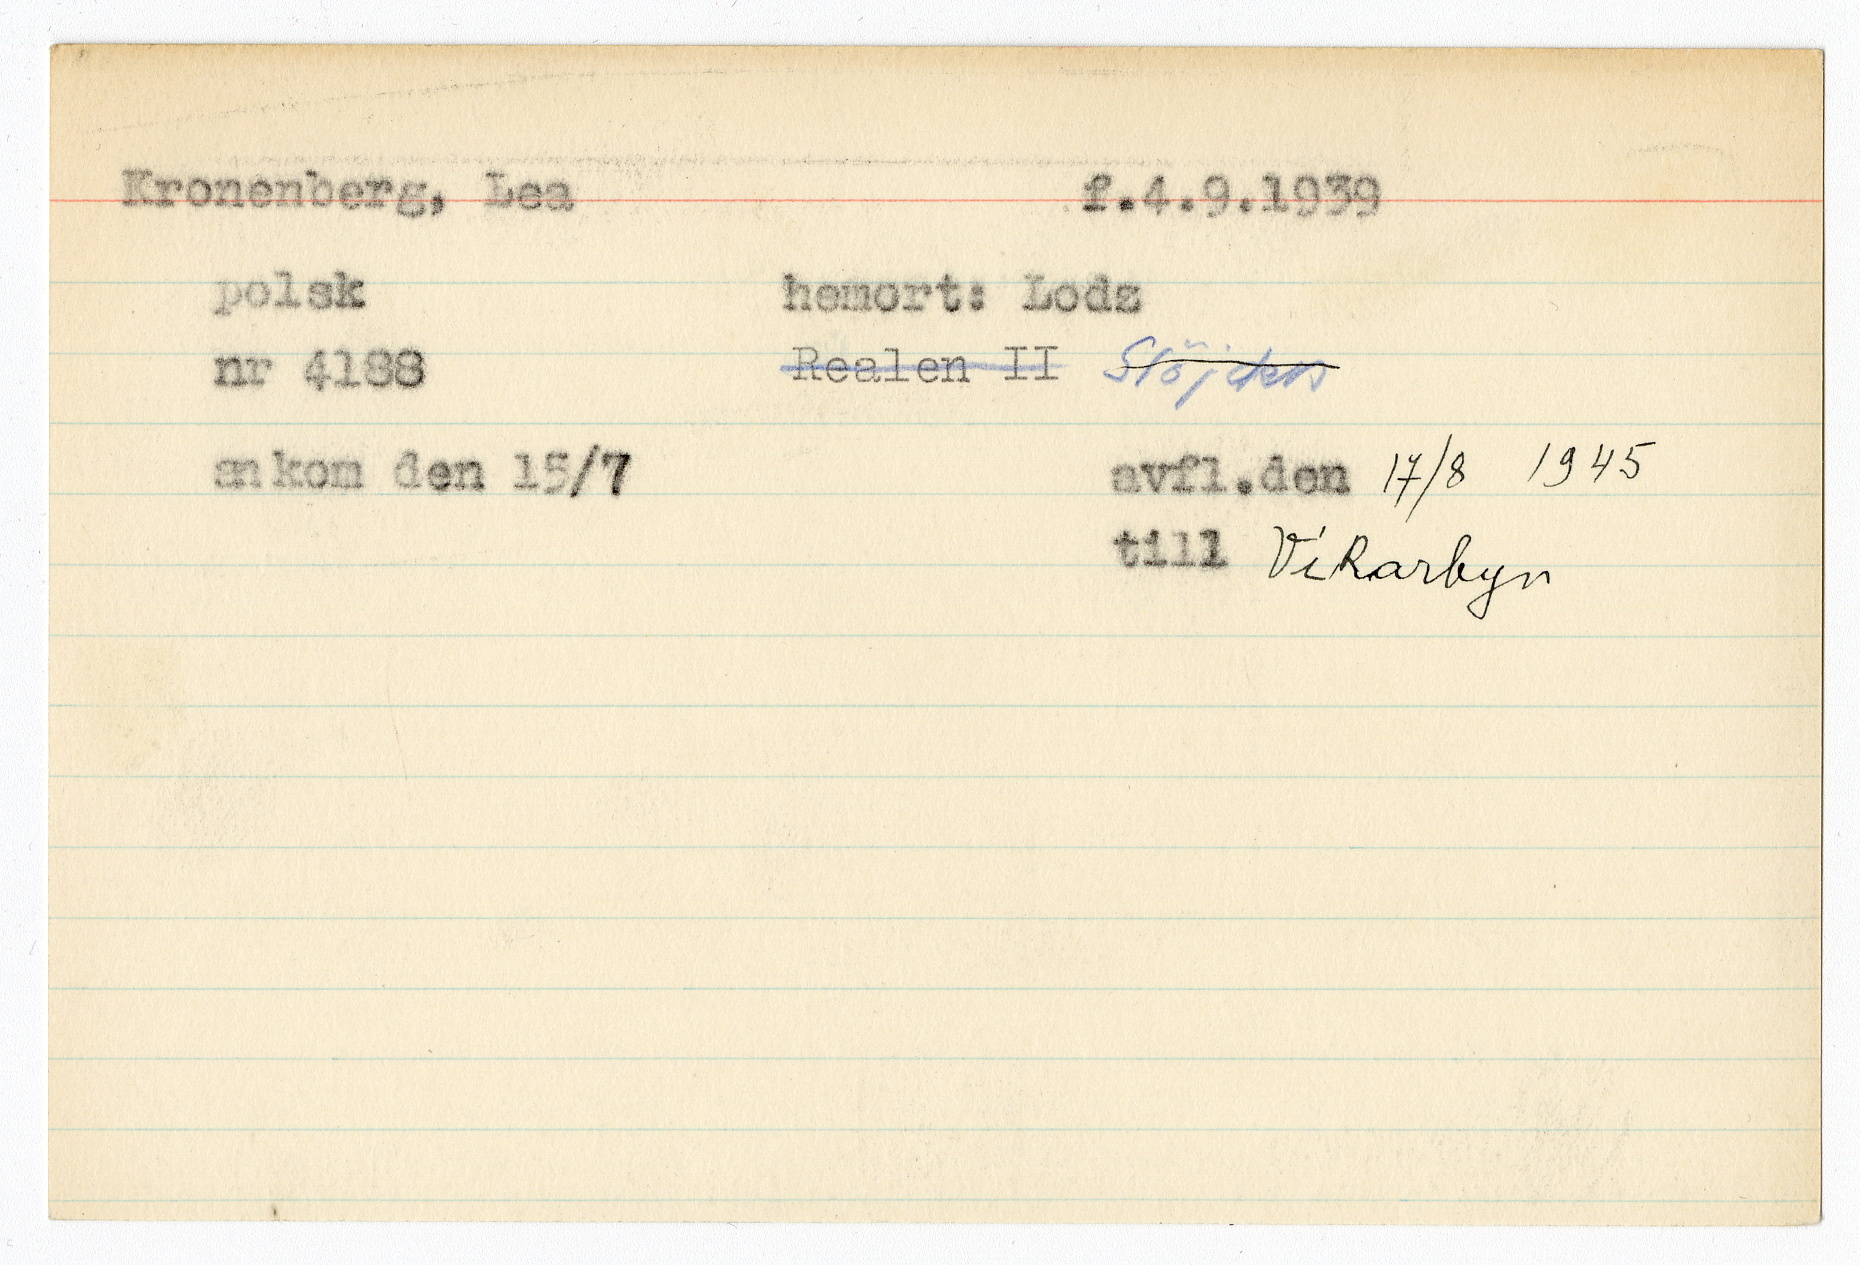 Kronenberg, Lea f.4.9.1939
polsk hemort: Lodz
nr 4188 Realen II Slöjden
ankom den 15/7 avfl.den 17/8 1945
till Vikarbyn